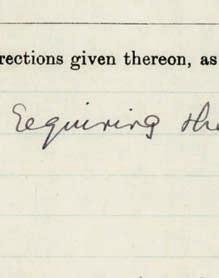 rections given thereon, as
Requiring the